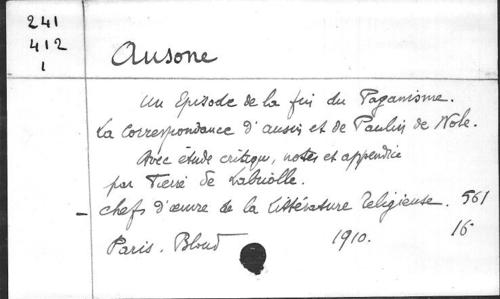 241
412
1
Ausone
Un Episode de la fin du Paganisme.
La Correspondance d'Ausone et de Paulin de Nole.
Avec étude critique, notes et appendice
par Pierre de Labriolle.
- chefs d'œuvre de la littérature religieuse. 561
Paris. Bloud 1910. 16°